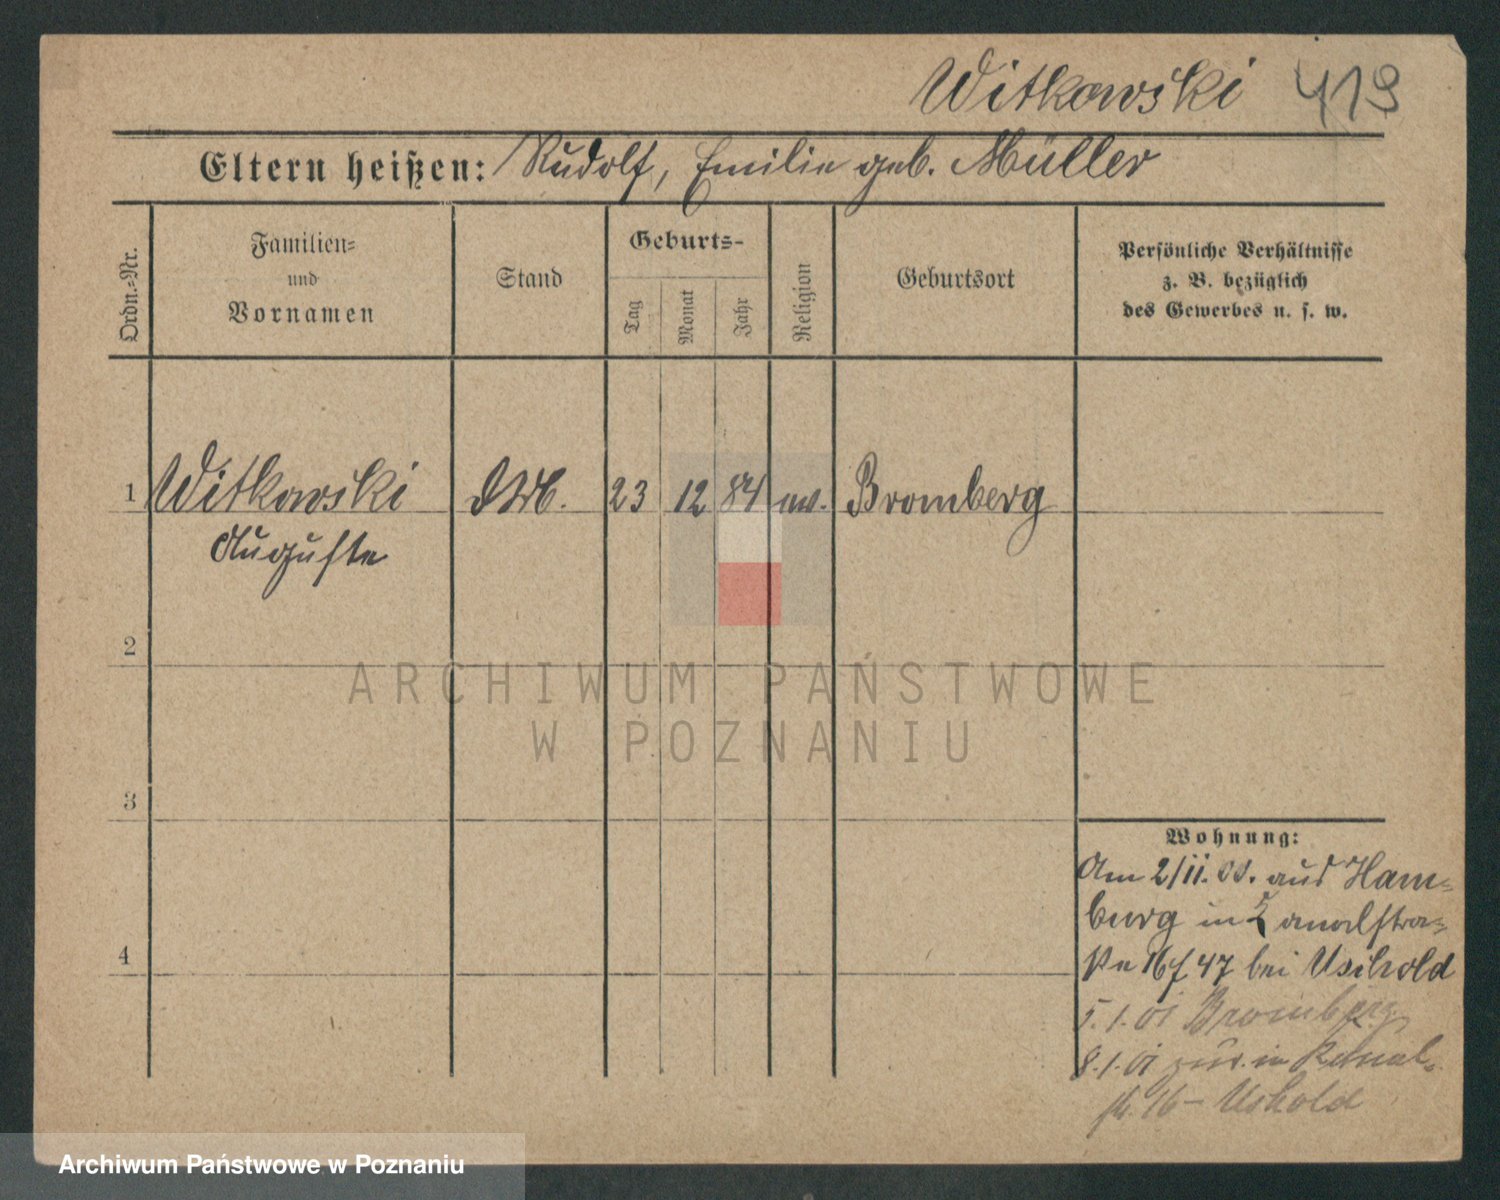 Witkowski 419
Eltern heißen: Rudolf, Emilie geb. Müller
Ordn.-Nr.
Familien-
und
Vornamen
Stand
Geburts-
Tag
Monat
Jahr
Religion
Geburtsort
Persönliche Verhältnisse
z. B. bezüglich
des Gewerbes u. s. w.
1 Witkowski 23 12 84 ev. Bromberg
Auguste
2
ARCHIWUM PAŃSTWOWE
W POZNANIU
3
Wohnung:
Am 2/11. 00. aus Ham-
burg in Kanalstra-
4
ße 16 bei
5.1.01 Bromberg
8.1.01 zur. in Kanal-
str. 16 –
Archiwum Państwowe w Poznaniu